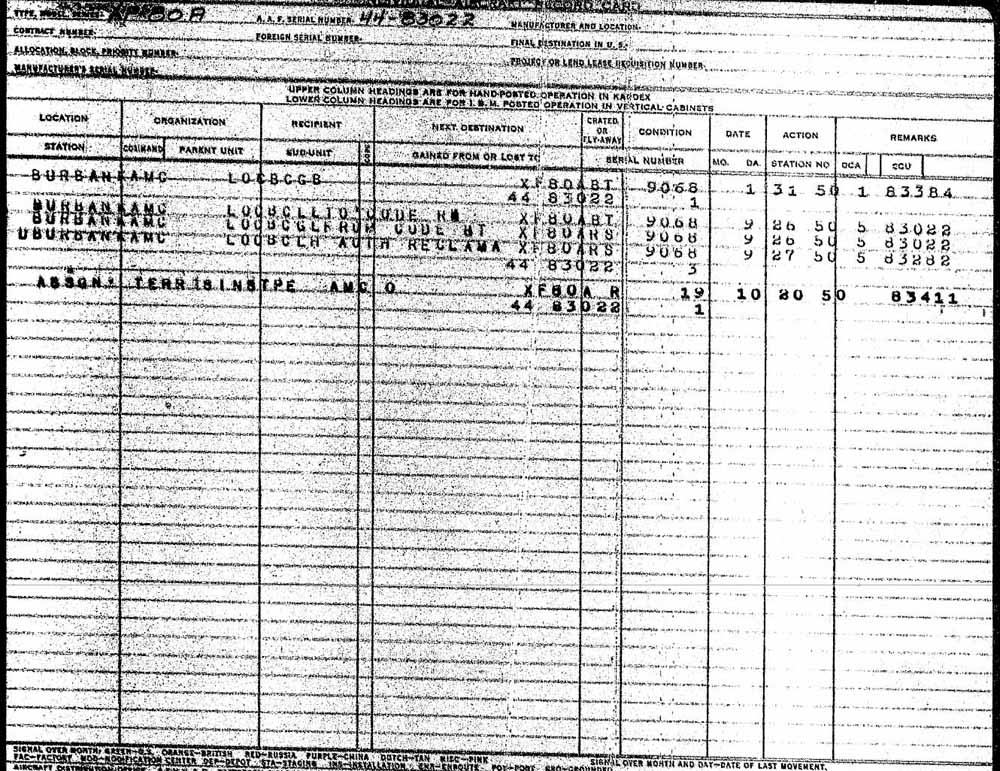 INDIVIDUAL AIRCRAFT RECORD CARD
TYPE, MODEL, SERIES XF-80A A. A. F. SERIAL NUMBER 44-83022 MANUFACTURER AND LOCATION
CONTRACT NUMBER FOREIGN SERIAL NUMBER FINAL DESTINATION IN U. S.
ALLOCATION, BLOCK, PRIORITY NUMBER PROJECT OR LEND LEASE REQUISITION NUMBER
MANUFACTURER'S SERIAL NUMBER
UPPER COLUMN HEADINGS ARE FOR HAND-POSTED OPERATION IN KARDEX
LOWER COLUMN HEADINGS ARE FOR I. B. M. POSTED OPERATION IN VERTICAL CABINETS
LOCATION ORGANIZATION RECIPIENT NEXT DESTINATION CRATED OR FLY-AWAY CONDITION DATE ACTION REMARKS
STATION COMMAND PARENT UNIT SUB-UNIT GAINED FROM OR LOST TO SERIAL NUMBER MO. DA. STATION NO
BURBANKAMC LOCBCGB XF80ABT 9068 1 31 50 1 83384
44 83022 1
BURBANKAMC XF80ABT 9068 9 26 50 5 83022
BURBANKAMC CODE BT XF80ARS 9068 9 26 50 5 83022
BURBANKAMC AUTH RECLAMA XF80ARS 9068 9 27 50 5 83282
44 83022 3
TERR AMC O XF80A R 19 10 20 50 83411
44 83022 1
SIGNAL OVER MONTH, ORANGE-BRITISH RED-RUSSIA PURPLE-CHINA DUTCH-TAN MISC-PINK
SIGNAL OVER MONTH AND DAY-DATE OF LAST MOVEMENT.
FAC-FACTORY MOD-MODIFICATION CENTER DEP-DEPOT STA-STAGING INS-INSTALLATION ENR-ENROUTE POE-PORT GRO-GROUNDED